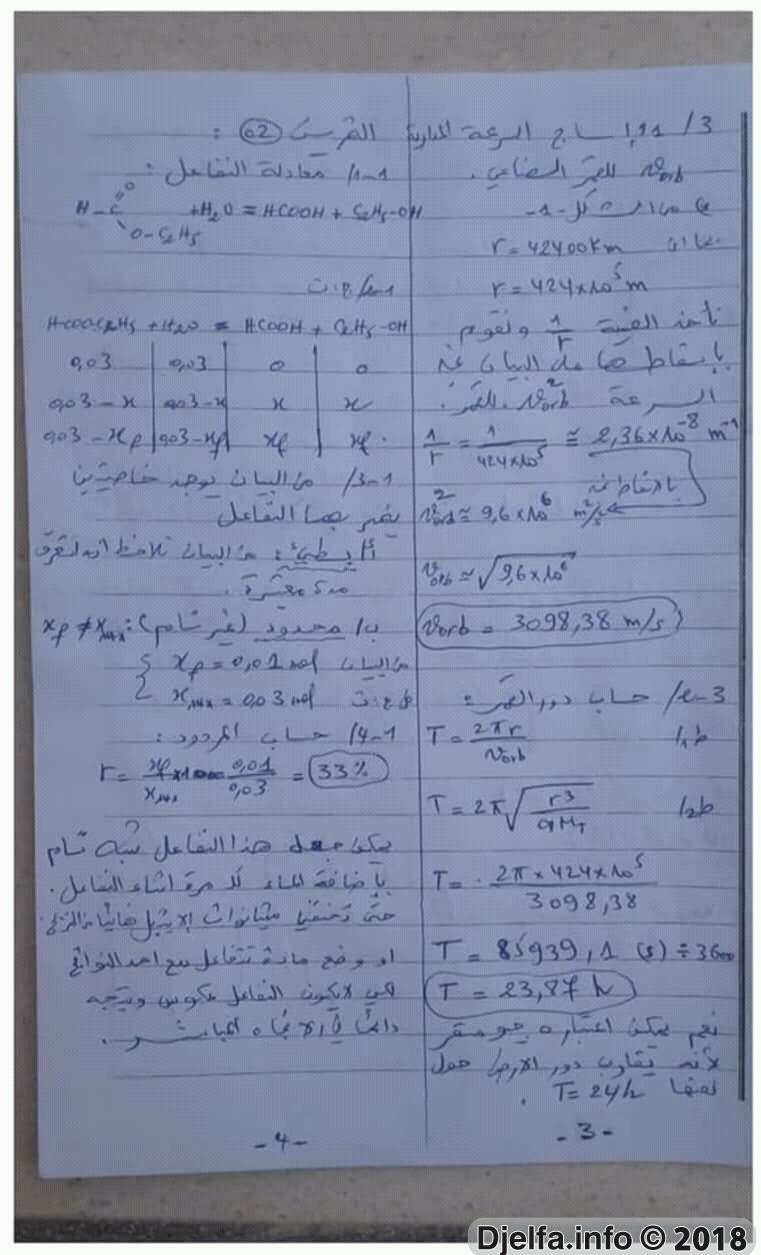 3/ 1 إسـاج السرعة المدارية
vorb للقمر الصناعي.
من الشكل -1-
بما أن r = 42400 Km
r = 424×10⁵ m
نأخذ القيمة 1/r ونقوم
بإسقاطها على البيان نجد
السرعة v²orb للقمر.
1/r = 1/424×10⁵ ≅ 2,36×10⁻⁸ m⁻¹
بالإسقاط نجد
v²orb ≈ 9,6×10⁶ m²/s²
vorb ≈ √9,6×10⁶
vorb = 3098,38 m/s
3-2/ حساب دور القمر:
ط1 T = 2πr/vorb
ط2 T = 2π√r³/GMT
T = 2π × 424×10⁵/3098,38
T = 85939,1 (s) ÷ 3600
T = 23,87 h
نعم يمكن اعتباره جيو مستقر
لأنه يقارب دور الأرض حول
نفسها T = 24h .
-3-
التمرين 02 :
1-1/ معادلة التفاعل :
H-C O O-C₂H₅ +H₂O = HCOOH + C₂H₅-OH
1-2/ ج.ت
HCOOC₂H₅ + H₂O = HCOOH + C₂H₅-OH
0,03 | 0,03 | 0 | 0
0,03 - x | 0,03 - x | x | x
0,03 - xf | 0,03 - xf | xf | xf.
1-3/ من البيان يوجد خاصيتين
يتميز بهما التفاعل
أ/ بطيئ : من البيان نلاحظ أنه استغرق
مدة معتبرة .
ب/ محدود (غير تام): xf ≠ xmax
من البيان xf = 0,01 mol
ج.ت xmax = 0,03 mol
1-4/ حساب المردود :
r = xf/xmax ×100 = 0,01/0,03 = 33%
يمكن جعل هذا التفاعل شبه تام
بإضافة الماء كل مرة أثناء التفاعل.
حتى تختفي ميثانوات الإيثيل من المزيج
أو وضع مادة تتفاعل مع أحد النواتج
لكي لا يكون التفاعل عكوس ويتجه
دائما في الاتجاه المباشر.
-4-
Djelfa.info © 2018